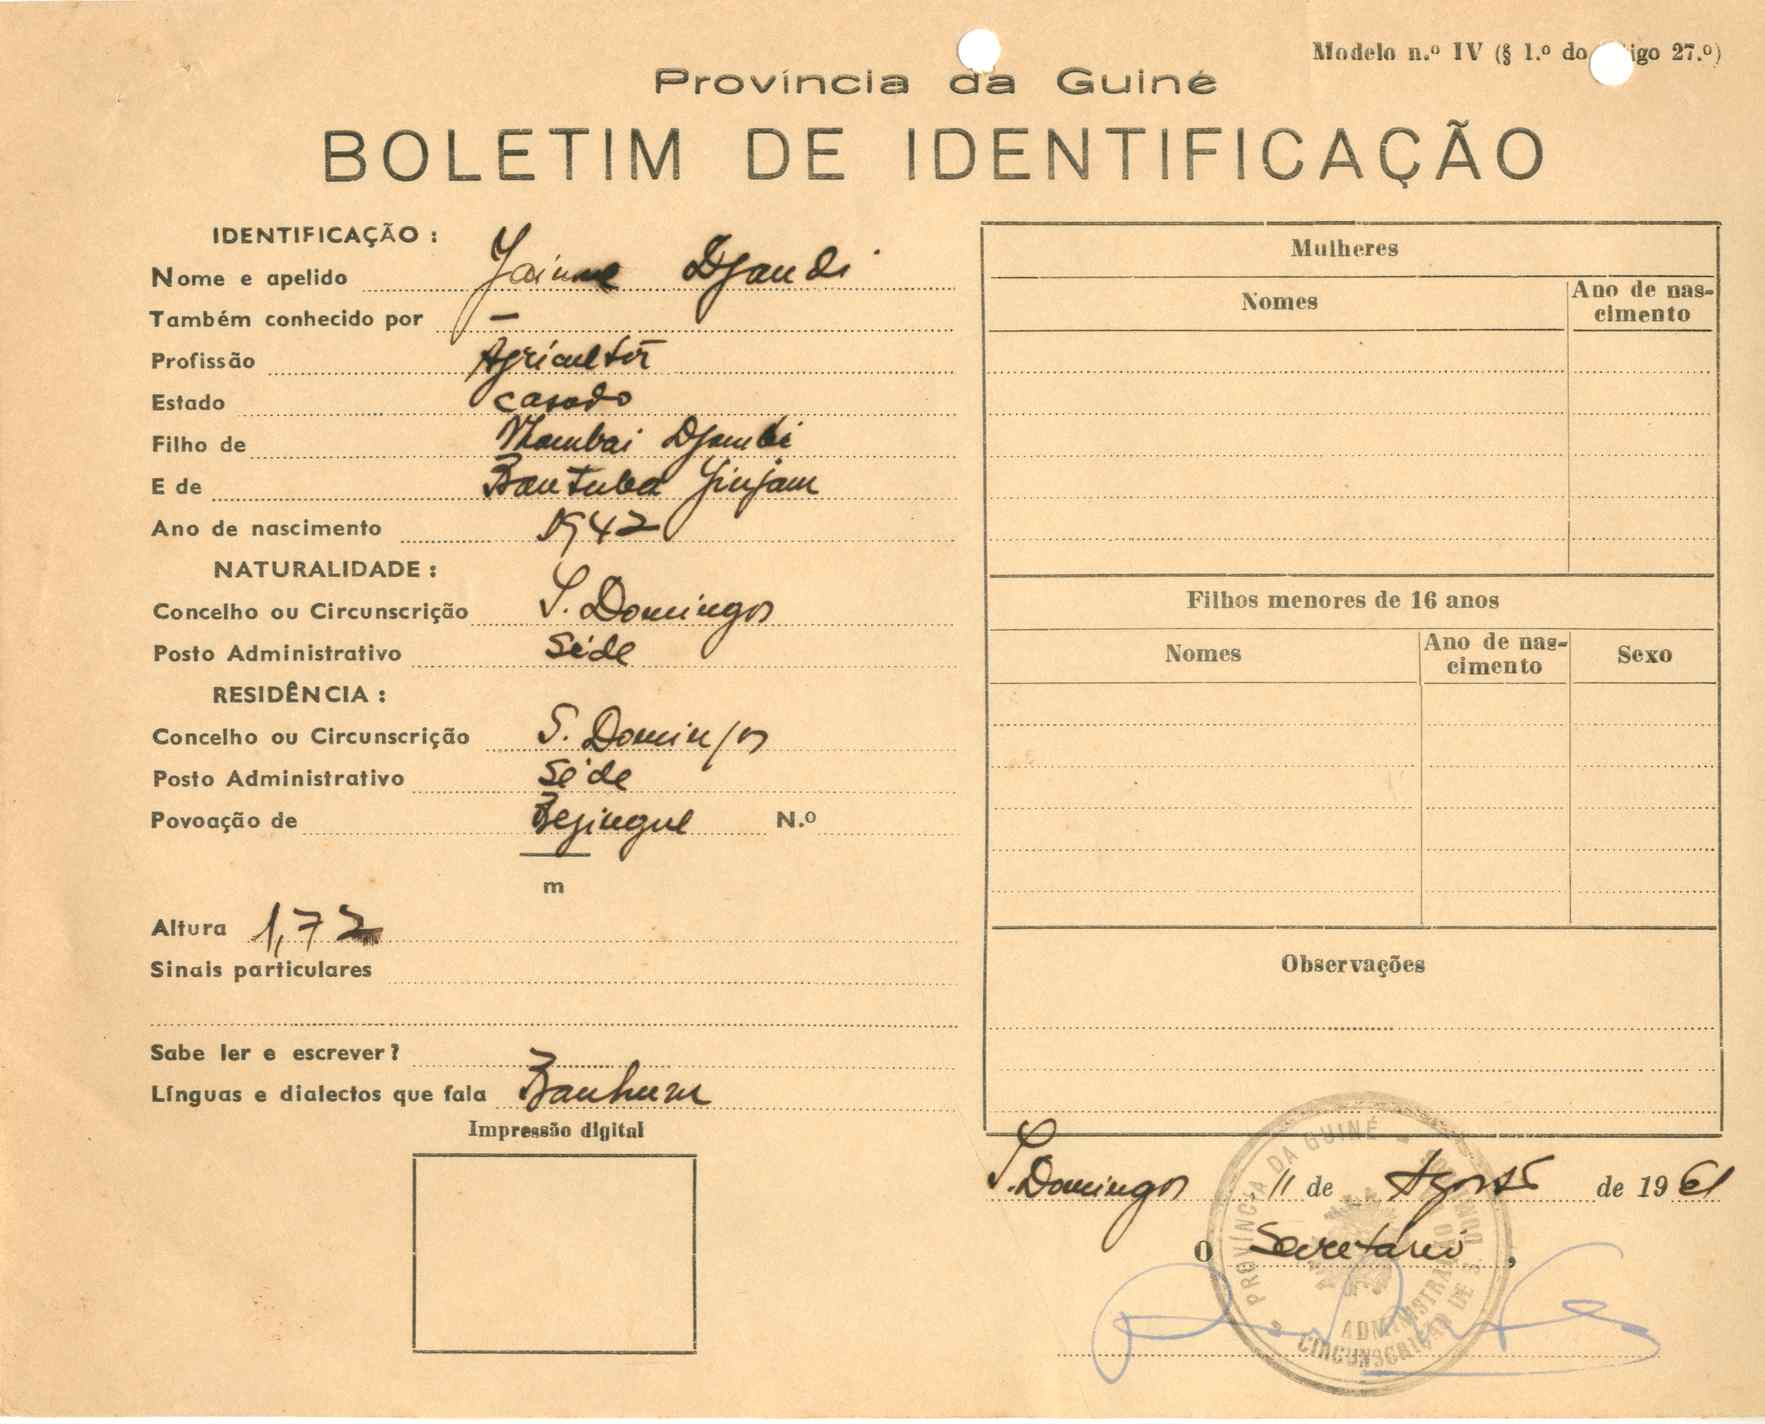 Modelo n.º IV (§ 1.º do igo 27.º)
Província da Guiné
BOLETIM DE IDENTIFICAÇÃO
IDENTIFICAÇÃO :
Nome e apelido Jaime Djandi
Também conhecido por —
Profissão Agricultor
Estado casado
Filho de Mambai Djambi
E de Bantuba Jinjam
Ano de nascimento 1942
NATURALIDADE :
Concelho ou Circunscrição S. Domingos
Posto Administrativo Séde
RESIDÊNCIA :
Concelho ou Circunscrição S. Domingos
Posto Administrativo Séde
Povoação de Bejingue N.º
m
Altura 1,72
Sinais particulares
Sabe ler e escrever?
Línguas e dialectos que fala Banhum
Impressão digital
Mulheres
Nomes Ano de nas-
cimento
Filhos menores de 16 anos
Nomes Ano de nas-
cimento Sexo
Observações
S. Domingos, 11 de Agosto de 1961
O Secretário,
PROVÍNCIA DA GUINÉ
ADMINISTRAÇÃO DO
CIRCUNSCRIÇÃO DE S. DOMINGOS